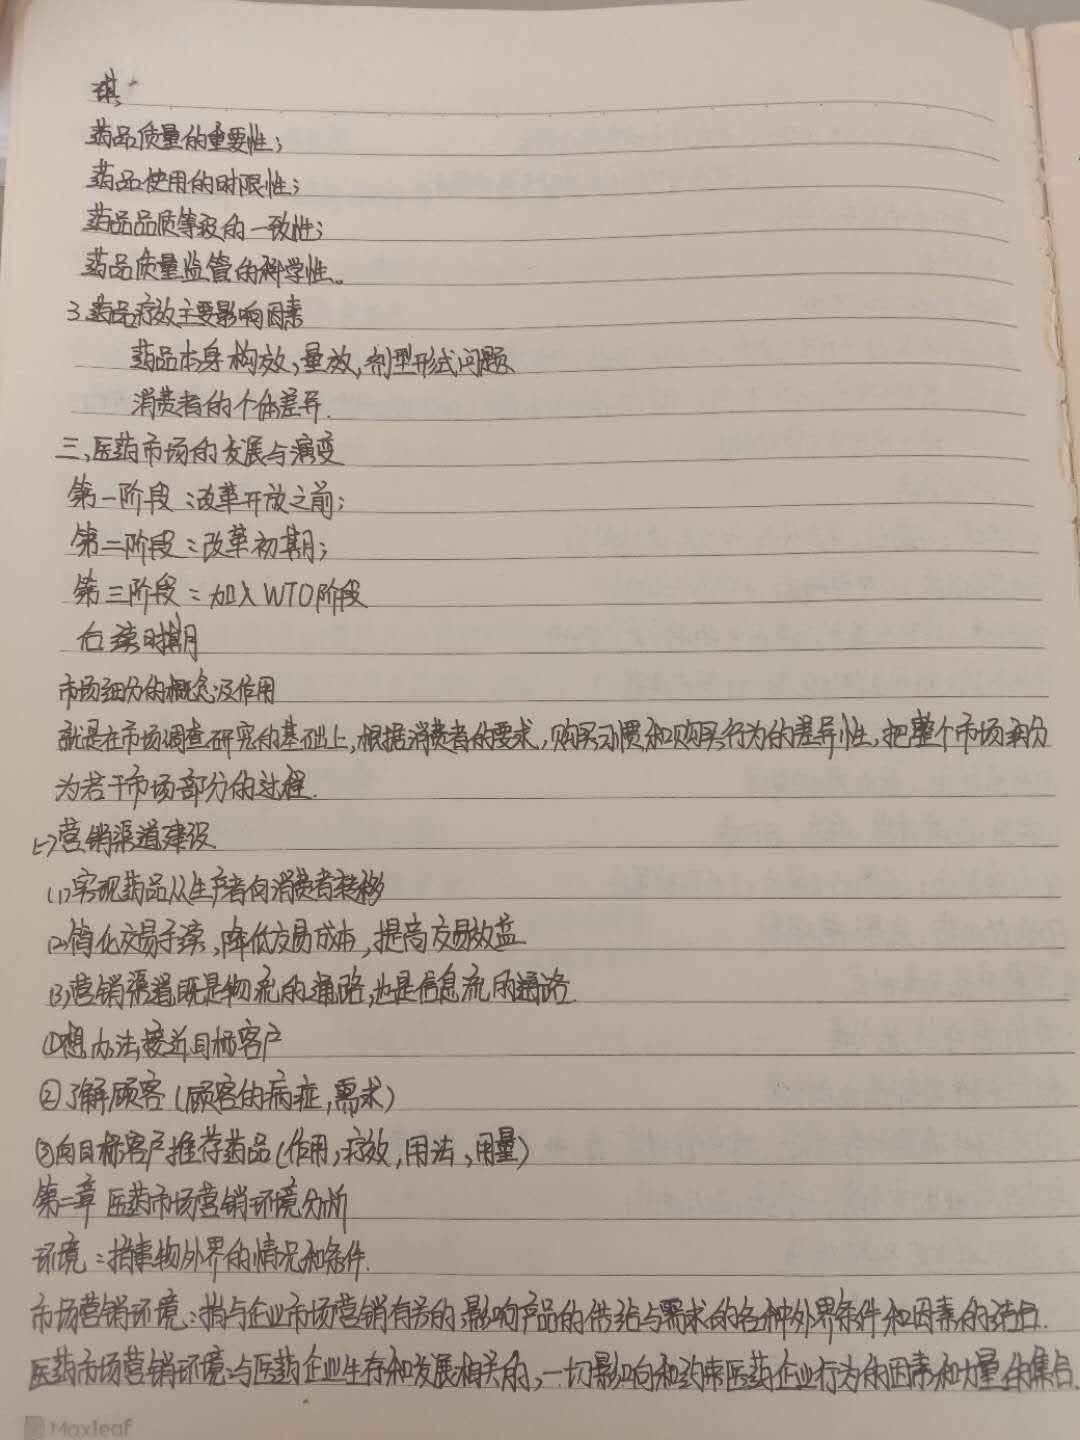 琪
药品质量的重要性;
药品使用的时限性;
药品品质等级的一致性;
药品质量监管的科学性。
3.药品疗效主要影响因素
药品本身构效,量效,剂型形式问题
消费者的个体差异.
三、医药市场的发展与演变
第一阶段:改革开放之前;
第二阶段:改革初期;
第三阶段:加入WTO阶段
后续时期
市场细分的概念及作用
就是在市场调查研究的基础上,根据消费者的要求,购买习惯和购买行为的差异性,把整个市场划分
为若干市场部分的过程.
(二)营销渠道建设
(1)实现药品从生产者向消费者转移
(2)简化交易手续,降低交易成本,提高交易效益
(3)营销渠道既是物流的通路,也是信息流的通路.
①想办法接近目标客户
②了解顾客(顾客的病症,需求)
③向目标客户推荐药品(作用,疗效,用法,用量)
第二章 医药市场营销环境分析
环境:指事物外界的情况和条件.
市场营销环境:指与企业市场营销有关的,影响产品的供给与需求的各种外界条件和因素的综合.
医药市场营销环境:与医药企业生存和发展相关的,一切影响和约束医药企业行为的因素和力量的集合.
Maxleaf